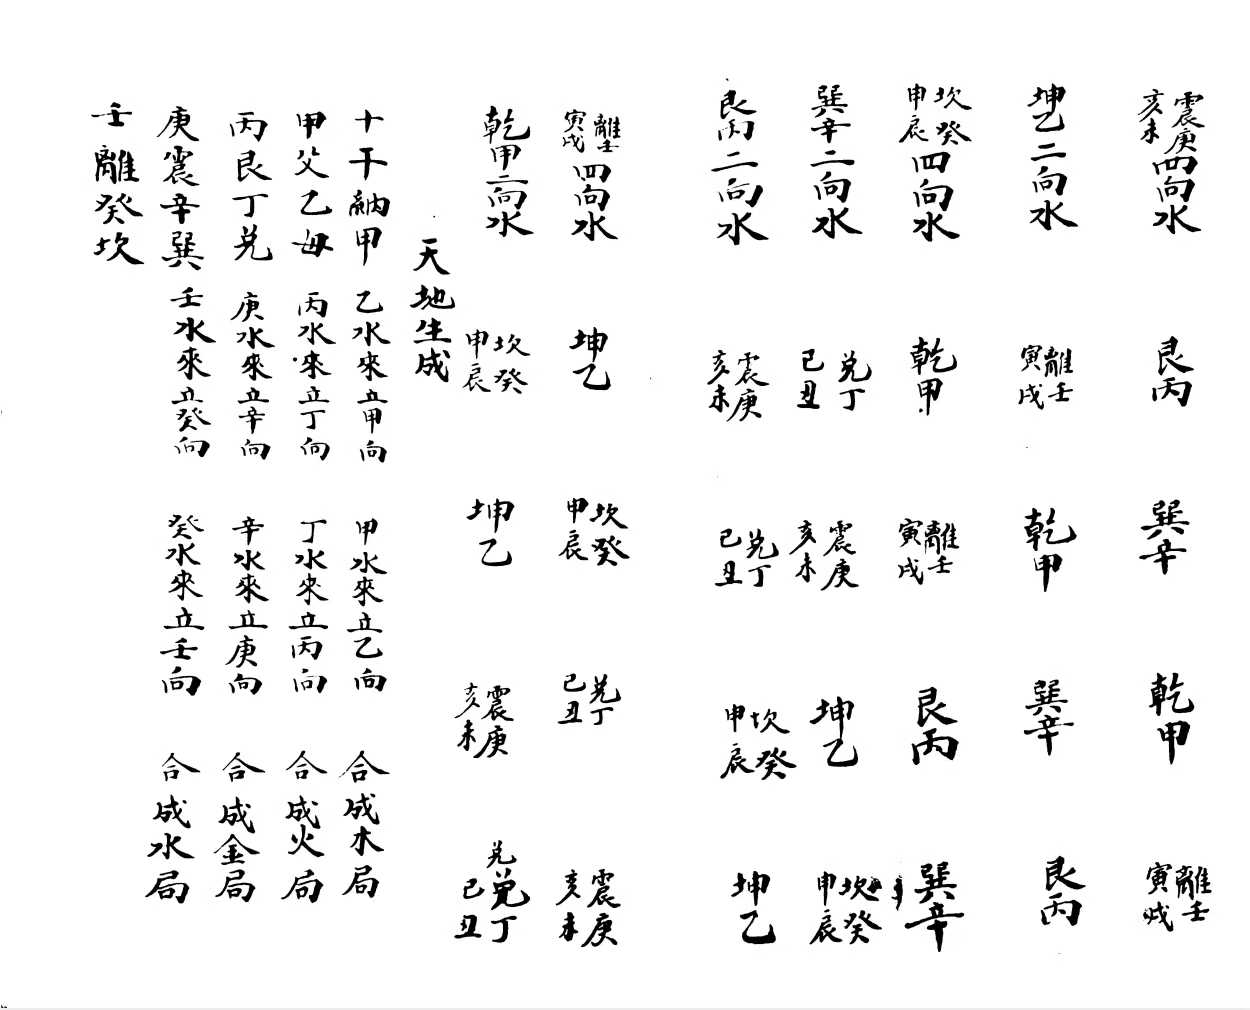 震庚亥未四向水 艮丙 巽辛 乾甲 離壬寅戌
坤乙二向水 離壬寅戌 乾甲 巽辛 艮丙
坎癸申辰四向水 乾甲 離壬寅戌 艮丙 巽辛
巽辛二向水 兌丁巳丑 震庚亥未 坤乙 坎癸申辰
艮丙二向水 震庚亥未 兌丁巳丑 坎癸申辰 坤乙
離壬寅戌四向水 坤乙 坎癸申辰 兌丁巳丑 震庚亥未
乾甲二向水 坎癸申辰 坤乙 震庚亥未 兌兌丁巳丑
天地生成
十干納甲 乙水來立甲向 甲水來立乙向 合成木局
甲父乙母 丙水來立丁向 丁水來立丙向 合成火局
丙艮丁兌 庚水來立辛向 辛水來立庚向 合成金局
庚震辛巽 壬水來立癸向 癸水來立壬向 合成水局
壬離癸坎